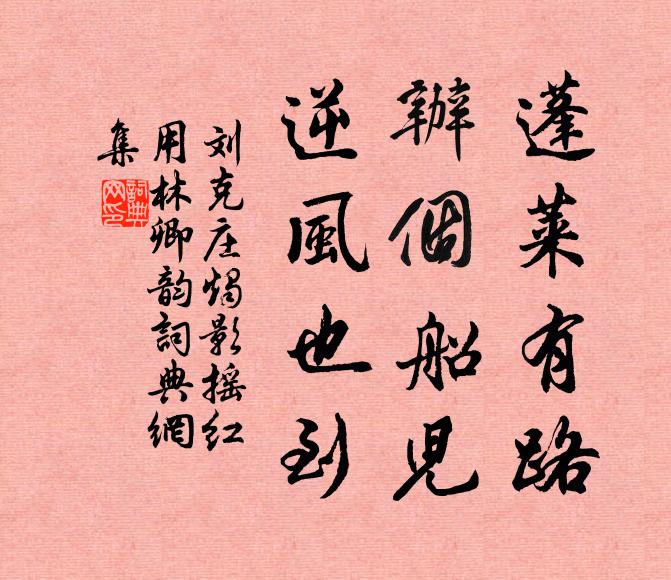 蓬莱有路
辦個船兒
逆風也到
刘克庄燭影摇红
用林卿韵詞典網
集
詞典
网印